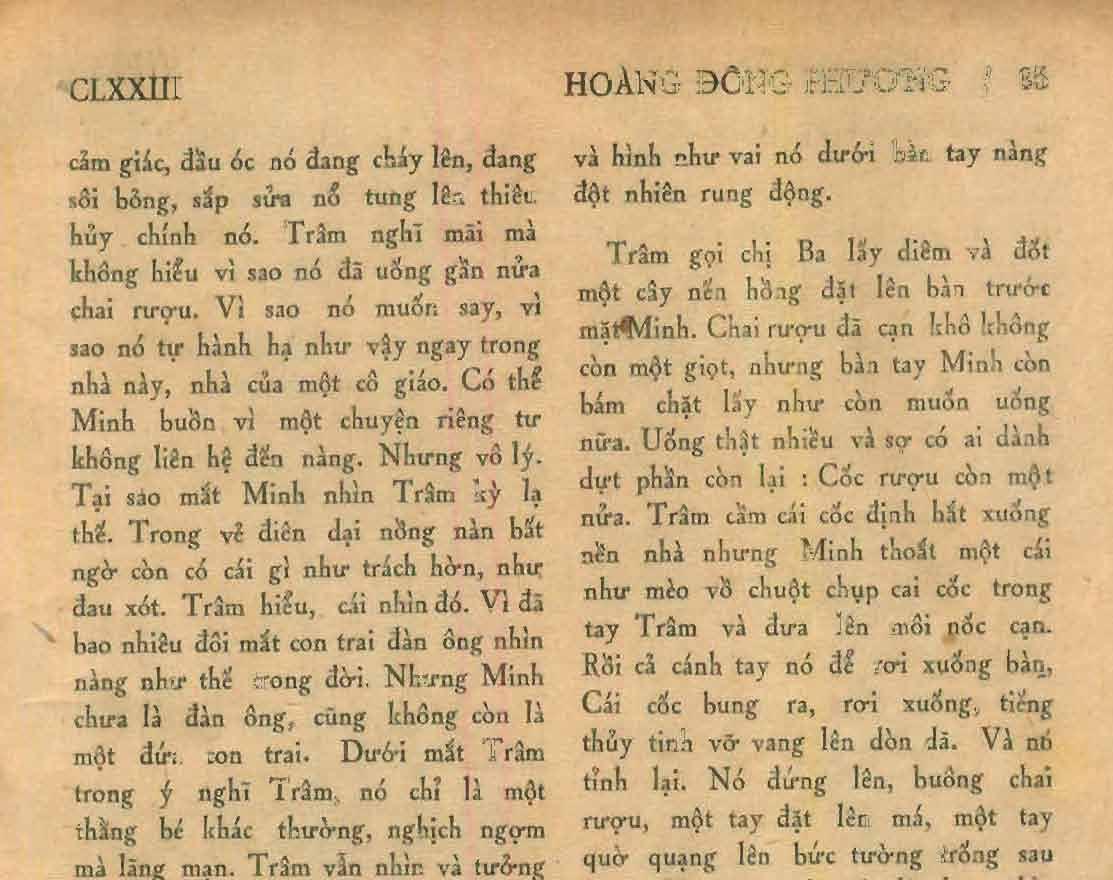 CLXXIII
HOÀNG ĐÔNG PHƯƠNG / 85
cảm giác, đầu óc nó đang cháy lên, đang
sôi bỏng, sắp sửa nổ tung lên thiêu
hủy chính nó. Trâm nghĩ mãi mà
không hiểu vì sao nó đã uống gần nửa
chai rượu. Vì sao nó muốn say, vì
sao nó tự hành hạ như vậy ngay trong
nhà này, nhà của một cô giáo. Có thể
Minh buồn vì một chuyện riêng tư
không liên hệ đến nàng. Nhưng vô lý.
Tại sao mắt Minh nhìn Trâm kỳ lạ
thế. Trong vẻ điên dại nồng nàn bất
ngờ còn có cái gì như trách hờn, như
đau xót. Trâm hiểu, cái nhìn đó. Vì đã
bao nhiêu đôi mắt con trai đàn ông nhìn
nàng như thế trong đời. Nhưng Minh
chưa là đàn ông, cũng không còn là
một đứa con trai. Dưới mắt Trâm
trong ý nghĩ Trâm, nó chỉ là một
thằng bé khác thường, nghịch ngợm
mà lãng mạn. Trâm vẫn nhìn và tưởng
và hình như vai nó dưới bàn tay nàng
đột nhiên rung động.
Trâm gọi chị Ba lấy diêm và đốt
một cây nến hồng đặt lên bàn trước
mặt Minh. Chai rượu đã cạn khô không
còn một giọt, nhưng bàn tay Minh còn
bám chặt lấy như còn muốn uống
nữa. Uống thật nhiều và sợ có ai dành
dựt phần còn lại : Cốc rượu còn một
nửa. Trâm cầm cái cốc định hắt xuống
nền nhà nhưng Minh thoắt một cái
như mèo vồ chuột chụp cai cốc trong
tay Trâm và đưa lên môi nốc cạn.
Rồi cả cánh tay nó để rơi xuống bàn,
Cái cốc bung ra, rơi xuống, tiếng
thủy tinh vỡ vang lên dòn dã. Và nó
tỉnh lại. Nó đứng lên, buông chai
rượu, một tay đặt lên má, một tay
quờ quạng lên bức tường trống sau